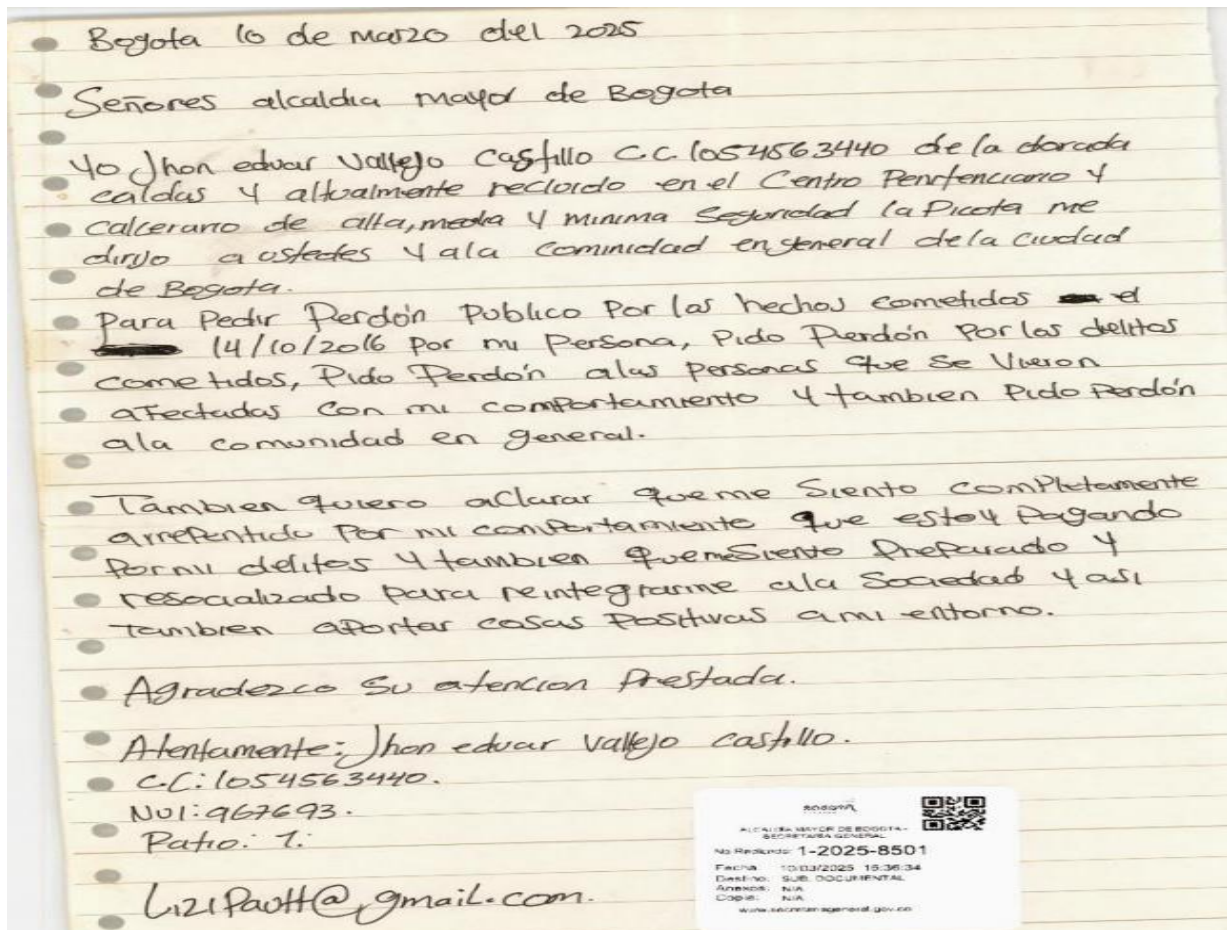 Bogota 10 de marzo del 2025
Señores alcaldia mayor de Bogota
Yo Jhon eduar Vallejo Castillo C.C. 1054563440 de la dorada
caldas y altualmente recluido en el Centro Penitenciario y
calcerario de alta, media y minima Seguridad la Picota me
dirijo a ustedes y ala Cominidad en general de la Ciudad
de Bogota.
Para Pedir Perdón Publico Por los hechos cometidos el
14/10/2016 Por mi Persona, Pido Perdón Por los delitos
cometidos, Pido Perdón alas Personas que se Vieron
afectadas Con mi comportamiento y tambien Pido Perdón
ala comunidad en general.
Tambien quiero aclarar que me Siento completamente
arrepentido Por mi comportamiento que estoy Pagando
Por mi delitos y tambien que me Siento Preparado y
resocializado para reintegrarme ala Sociedad y asi
tambien aportar cosas Positivas a mi entorno.
Agradezco Su atencion Prestada.
Atentamente: Jhon eduar Vallejo castillo.
C.C: 1054563440.
NUI: 967693.
Patio: 7.
BOGOTÁ
ALCALDIA MAYOR DE BOGOTA -
SECRETARIA GENERAL
No Radicado: 1-2025-8501
Fecha: 10/03/2025 15:36:34
Destino: SUB. DOCUMENTAL
Anexos: N/A
Copia: N/A
www.secretariageneral.gov.co
@gmail.com.